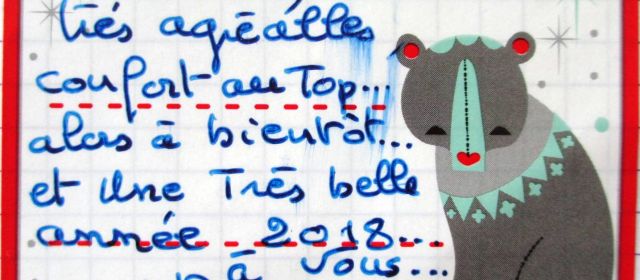 très agréables
confort au Top...
alors à bientôt...
et Une Très belle
année 2018...
à vous...